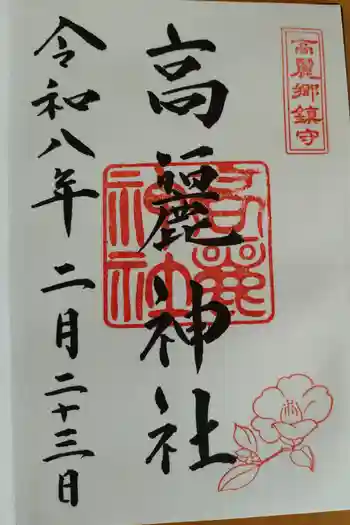 高麗郷鎮守
高麗神社
高麗神社
令和八年二月二十三日